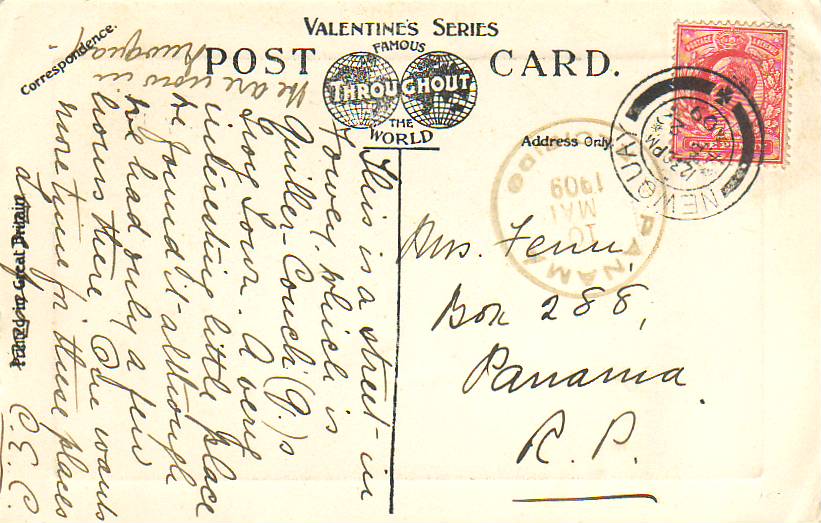 VALENTINE'S SERIES
FAMOUS
POST CARD.
THROUGHOUT
THE
WORLD
Correspondence.
Address Only.
Printed in Great Britain
NEWQUAY
12.30PM
09
PANAMA
RECIBIDO
10
MAY
1909
Mrs. Fenn,
Box 288,
Panama
R. P.
This is a street in
Fowey, which is
Quiller-Couch (Q.)'s
Troy Town. A very
interesting little place
we found it - although
we had only a few
hours there. One wants
more time for these places
C. E. C.
We are now in
Newquay